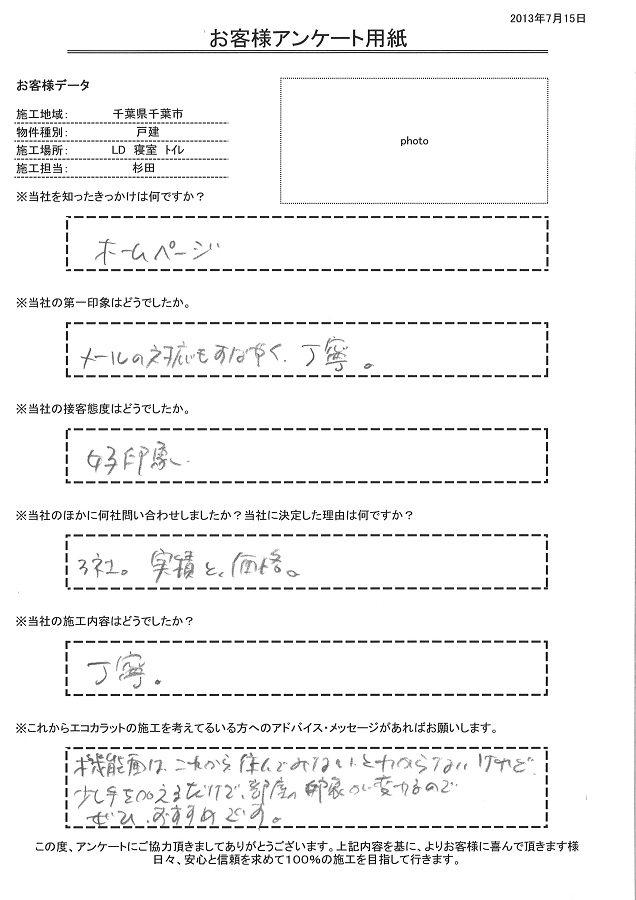 2013年7月15日
お客様アンケート用紙
お客様データ
施工地域： 千葉県千葉市
物件種別： 戸建
施工場所： LD 寝室 トイレ
施工担当： 杉田
photo
※当社を知ったきっかけは何ですか？
ホームページ
※当社の第一印象はどうでしたか。
メールの対応もすばやく、丁寧。
※当社の接客態度はどうでしたか。
好印象
※当社のほかに何社問い合わせしましたか？当社に決定した理由は何ですか？
3社。実績と、価格。
※当社の施工内容はどうでしたか？
丁寧。
※これからエコカラットの施工を考えてるいる方へのアドバイス・メッセージがあればお願いします。
機能面は、これから住んでみないとわからないけれど、
少し手を加えるだけで、部屋の印象が変わるので
ぜひ、おすすめです。
この度、アンケートにご協力頂きましてありがとうございます。上記内容を基に、よりお客様に喜んで頂きます様
日々、安心と信頼を求めて100％の施工を目指して行きます。